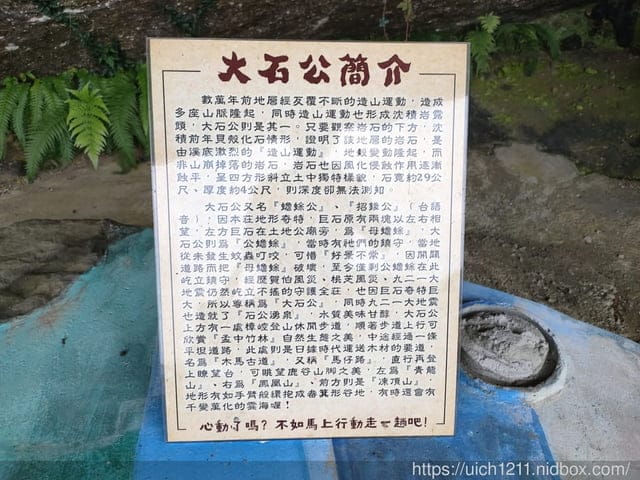 大石公簡介
數萬年前地層經反覆不斷的造山運動，造成
多座山脈隆起，同時造山運動也形成沈積岩露
頭，大石公則是其一。只要觀察岩石的下方，沈
積前年貝殼化石情形，證明了該地層的岩石，是
由溪底激烈的『造山運動』，地殼變動隆起，而
非山崩掉落的岩石，岩石也因風化侵蝕作用逐漸
蝕平，呈四方形斜立土中獨特樣貌，石寬約29公
尺、厚度約4公尺，則深度卻無法測知。
大石公又名『蟾蜍公』、『招錢公』（台語
音），因本莊地形奇特，巨石原有兩塊以左右相
望，左方巨石在土地公廟旁，為『母蟾蜍』，大
石公則爲『公蟾蜍』，當時有祂們的鎮守，當地
從未發生蚊蟲叮咬，可惜『好景不常』，因開闢
道路而把『母蟾蜍』破壞，至今僅剩公蟾蜍在此
屹立鎮守，經歷賀伯風災、桃芝風災、九二一大
地震仍然屹立不搖的守護全莊，也因巨石奇特巨
大，所以尊稱爲『大石公』，同時九二一大地震
也造就了『石公湧泉』，水質美味甘醇，大石公
上方有一處樟崆登山休閒步道，順著步道上行可
欣賞『孟中竹林』自然生態之美，中途經過一條
平坦道路，此處則是日據時代運送木材的要道，
名爲『木馬古道』，又稱『馬仔路』，直行再登
上瞭望台，可眺望鹿谷山腳之美，左爲『青龍
山』、右爲『鳳凰山』、前方則是『凍頂山』，
地形有如手臂般環抱成畚箕形谷地，有時還會有
千變萬化的雲海喔！
心動了嗎？不如馬上行動走一趟吧！
https://uich1211.nidbox.com/